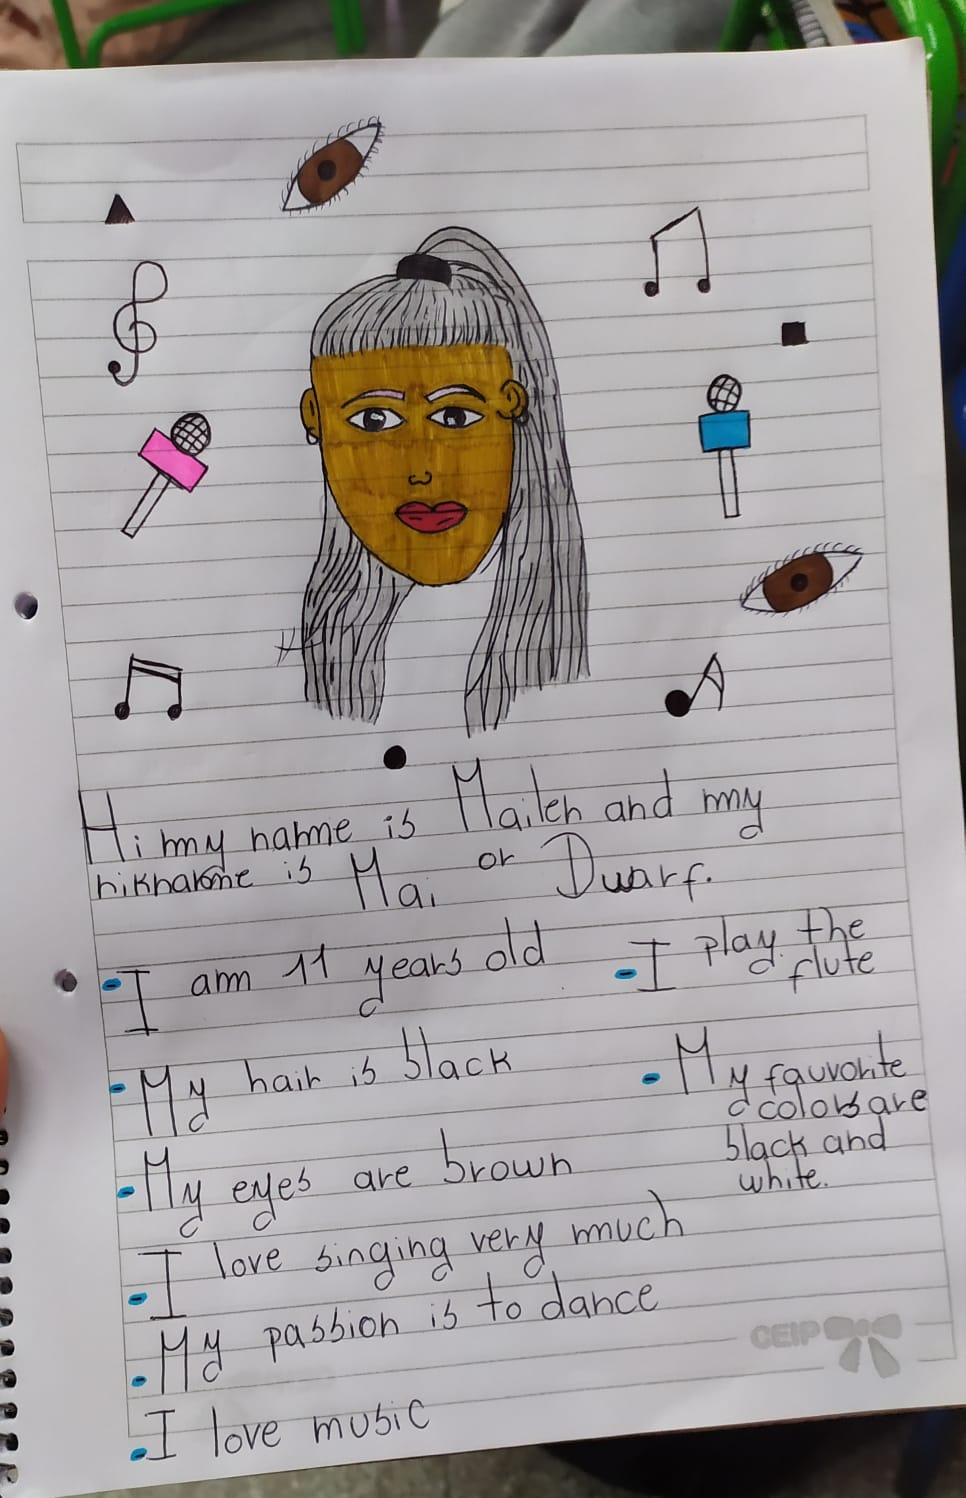 Hi my name is Mailen and my
niknakme is Mai or Dwarf.
- I am 11 years old
- I play the
flute
- My hair is black
- My fauvorite
colors are
black and
white.
- My eyes are brown
- I love singing very much
- My passion is to dance
- I love music
CEIP